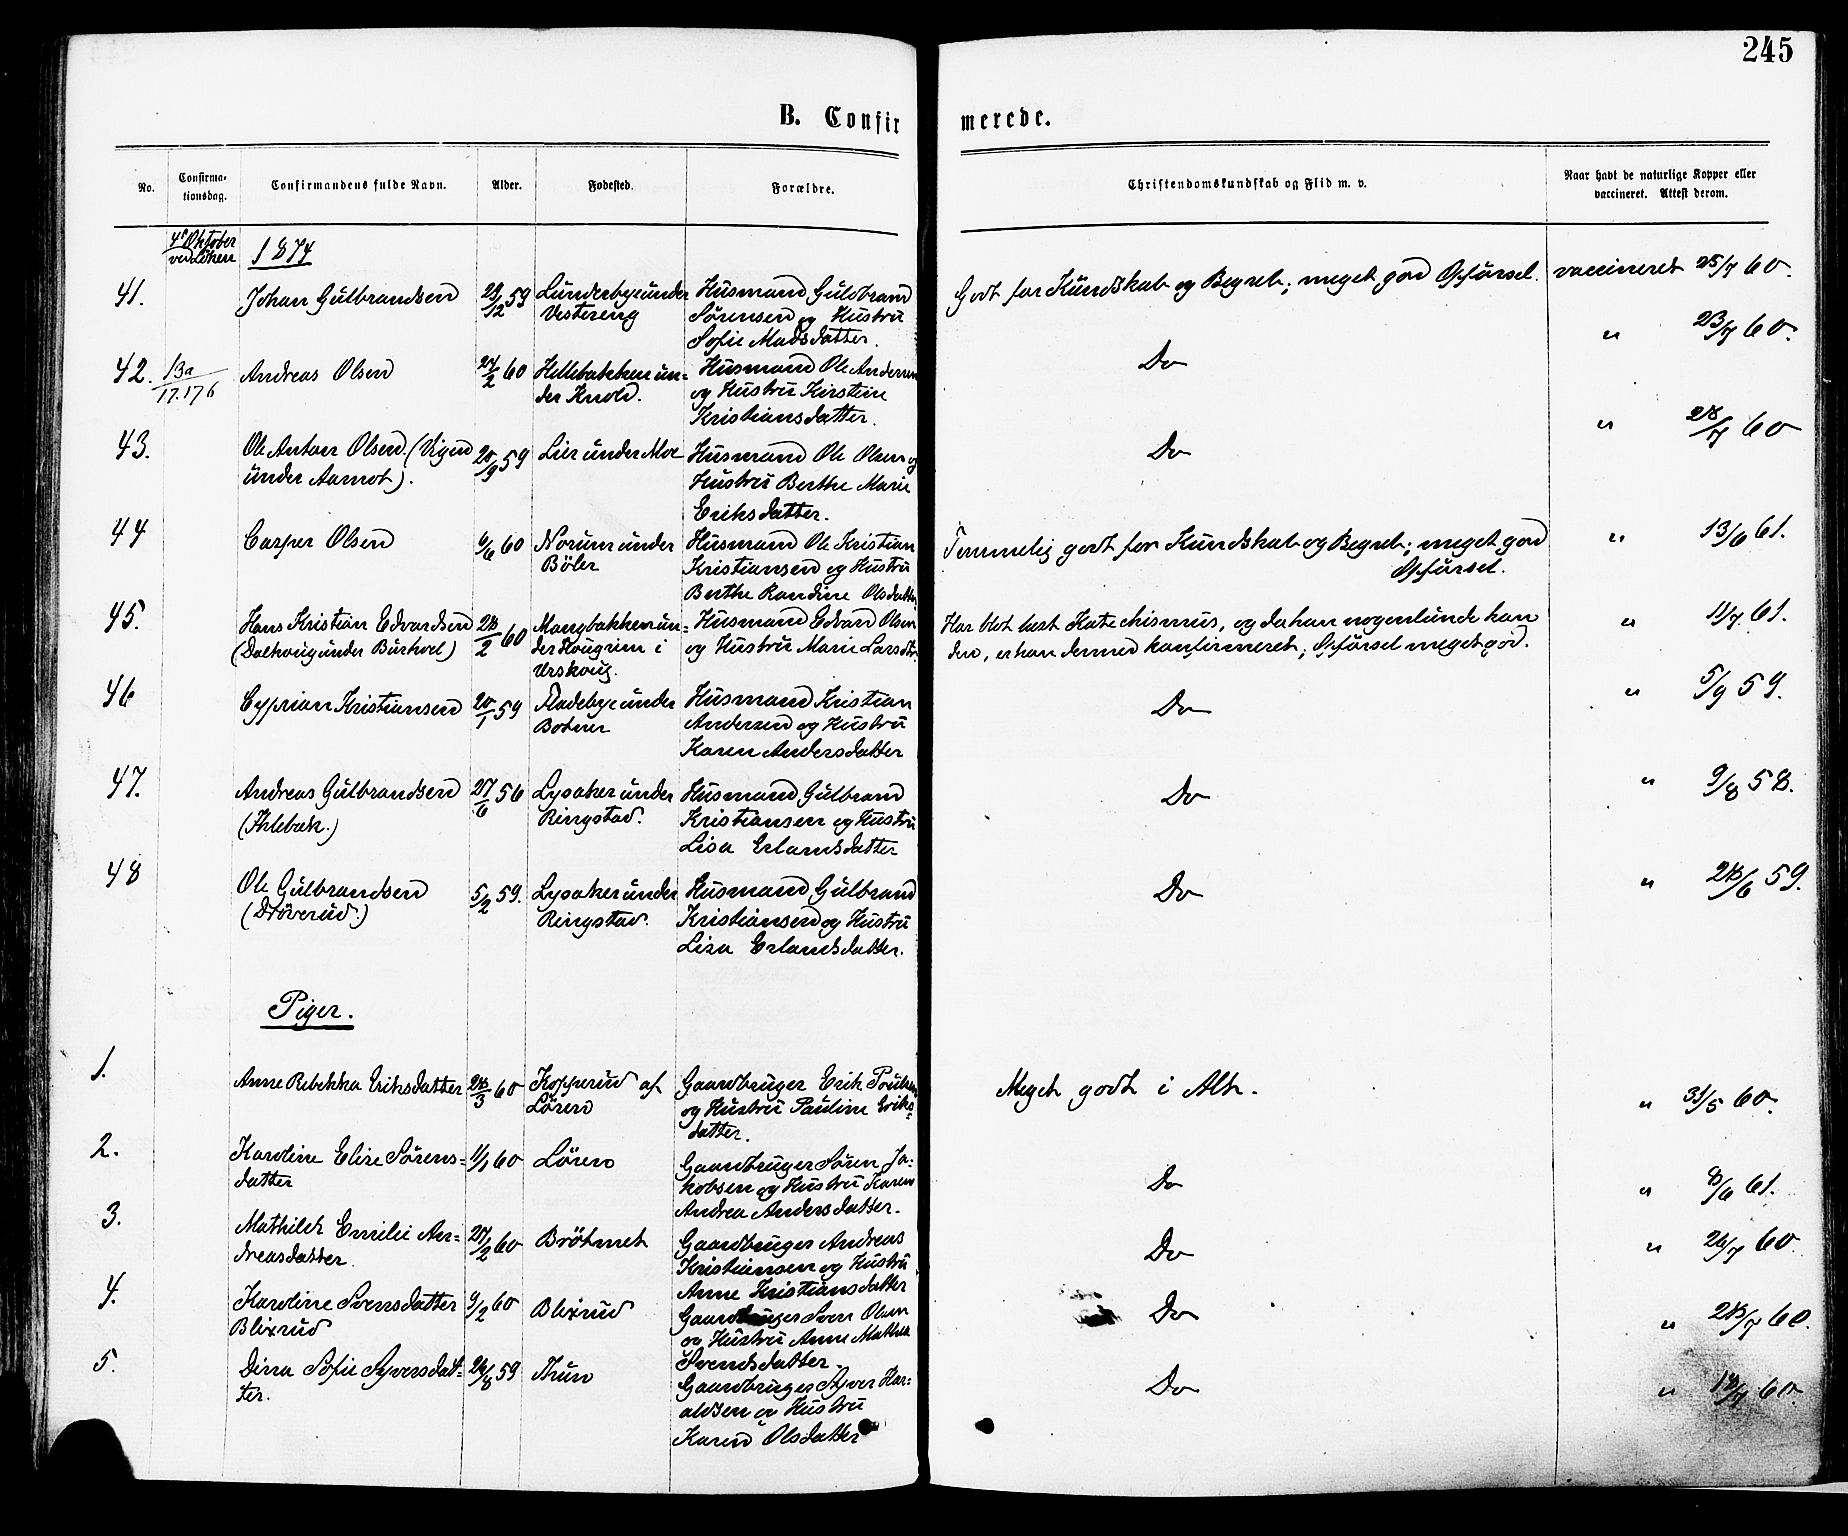 245
B. Confirmerede.
No. Confirmationsdag. Confirmandens fulde Navn. Alder. Fødested. Forældre. Christendomskundskab og Flid m. v. Naar havt de naturlige Kopper eller vaccineret. Attest derom.
4de Oktober
ved Löken 1874
41. Johan Gulbrandsen 29/12 59 Lundebye under Husmand Gulbrand Godt for Kundskab og Begreb; meget god Opførsel. vaccineret 25/7 60.
Vestereng Sørensen og Hustru
Sofie Madsdatter.
42. 13a Andreas Olsen 24/2 60 Hellebakken un= Husmand Ole Andersen Do " 23/7 60.
17.176 der Knold. og Hustru Kirstine
Kristiansdatter.
43. Ole Anton Olsen. (Vigen 20/9 59 Lier under Moe Husmand Ole Olsen og Do " 28/7 60
under Aamot). Hustru Berthe Marie
Eriksdatter.
44 Casper Olsen 6/6 60 Norum under Husmand Ole Kristian Temmelig godt for Kundskab og Begreb; meget god " 13/6 61.
Böler Kristiansen og Hustru Opførsel.
Berthe Randine Olsdatter
45. Hans Kristian Edvardsen 28/2 60 Mangbakken un= Husmand Edvard Olsen Har blot læst Katechismus, og da han nogenlunde kan " 11/7 61.
(Dalhoug under Burhol) der Hougrim i og Hustru Marie Larsdtr. den, er han dermed konfirmeret; Opførsel meget god.
Urskoug.
46 Cyprian Kristiansen 20/1 59 Fladebye under Husmand Kristian Do " 5/9 59.
Botner Andersen og Hustru
Karen Andersdatter
47. Andreas Gulbrandsen 27/6 56 Lysaker under Husmand Gulbrand Do " 9/8 58.
(Ihlebæk.) Ringstad. Kristiansen og Hustru
Lisa Erlandsdatter
48 Ole Gulbrandsen 5/2 59. Lysaker under Husmand Gulbrand Do " 28/6 59.
(Dröverud.) Ringstad. Kristiansen og Hustru
Lisa Erlandsdatter.
Piger.
1. Anne Rebekka Eriksdatter 28/3 60 Kopperud af Gaardbruger Erik Poulsen Meget godt i Alt. " 31/5 60.
Lören og Hustru Pauline Eriks=
datter.
2. Karoline Elise Sørens= 1/1 60 Lören Gaardbruger Sören Ja= Do " 8/6 61.
datter kobsen og Hustru Karen
Andrea Andersdatter.
3. Mathilde Emilie An= 27/2 60 Brötmet Gaardbruger Andreas Do " 26/7 60.
dreasdatter. Kristiansen og Hustru
Anne Kristiansdatter
4. Karoline Svensdatter 9/2 60 Blixrud Gaardbruger Sven Olsen Do " 28/7 60.
Blixrud og Hustru Anne Mathea
Svendsdatter.
5. Dina Sofie Syversdat= 26/8 59 Thun Gaardbruger Syver Har= Do " 18/7 60.
ter. aldsen og Hustru
Karen Olsdatter